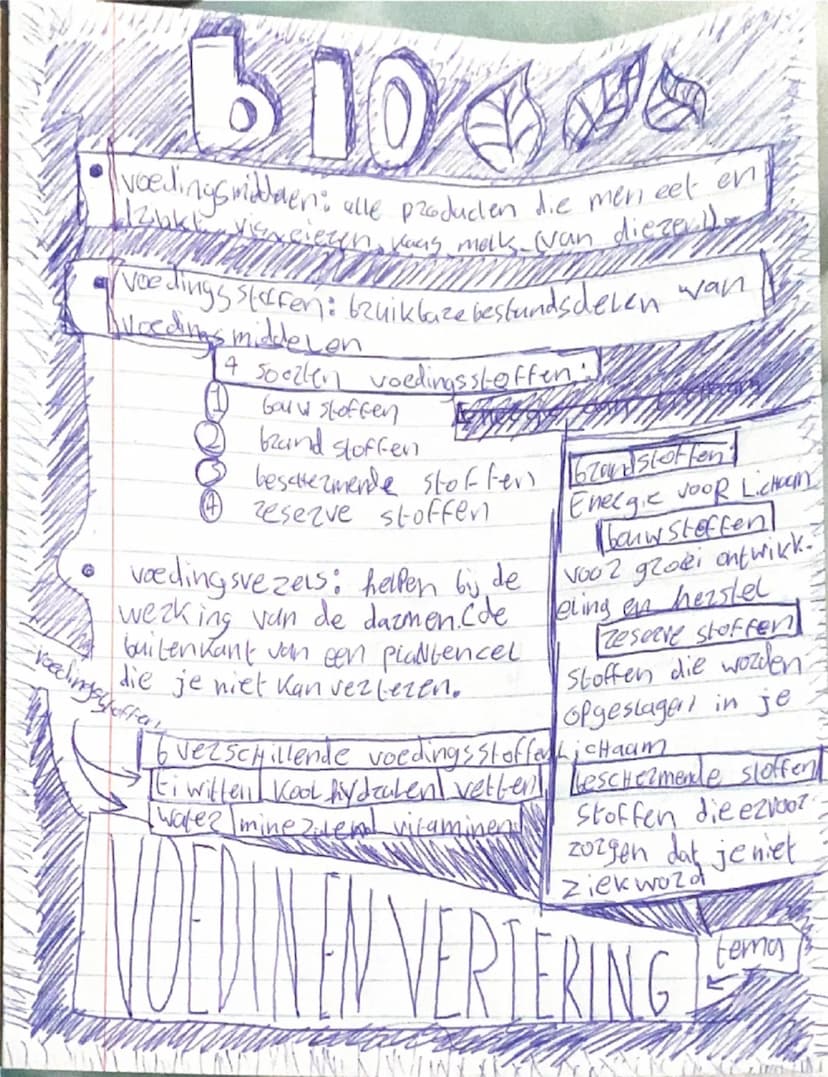 bIO
voedingsmiddelen: alle producten die men eet en
drinkt. vis, eieren, kaas, melk. (van dieren!).
voedingsstoffen: bruikbare bestandsdelen van
voedingsmiddelen
4 soorten voedingsstoffen:
1 bouwstoffen
2 brandstoffen
3 beschermende stoffen
4 reserve stoffen
voedingsvezels: helpen bij de
werking van de darmen. (de
buitenkant van een plantencel
die je niet kan verteren.
voedingsstoffen
6 verschillende voedingsstoffen
Eiwitten koolhydraten vetten
water mineralen vitaminen
brandstoffen
Energie voor Lichaam
bouwstoffen
voor groei ontwikk-
eling en herstel
reserve stoffen
stoffen die worden
opgeslagen in je
Lichaam
beschermende stoffen
stoffen die ervoor
zorgen dat je niet
ziek word
VOEDIN EN VERTERING
tema